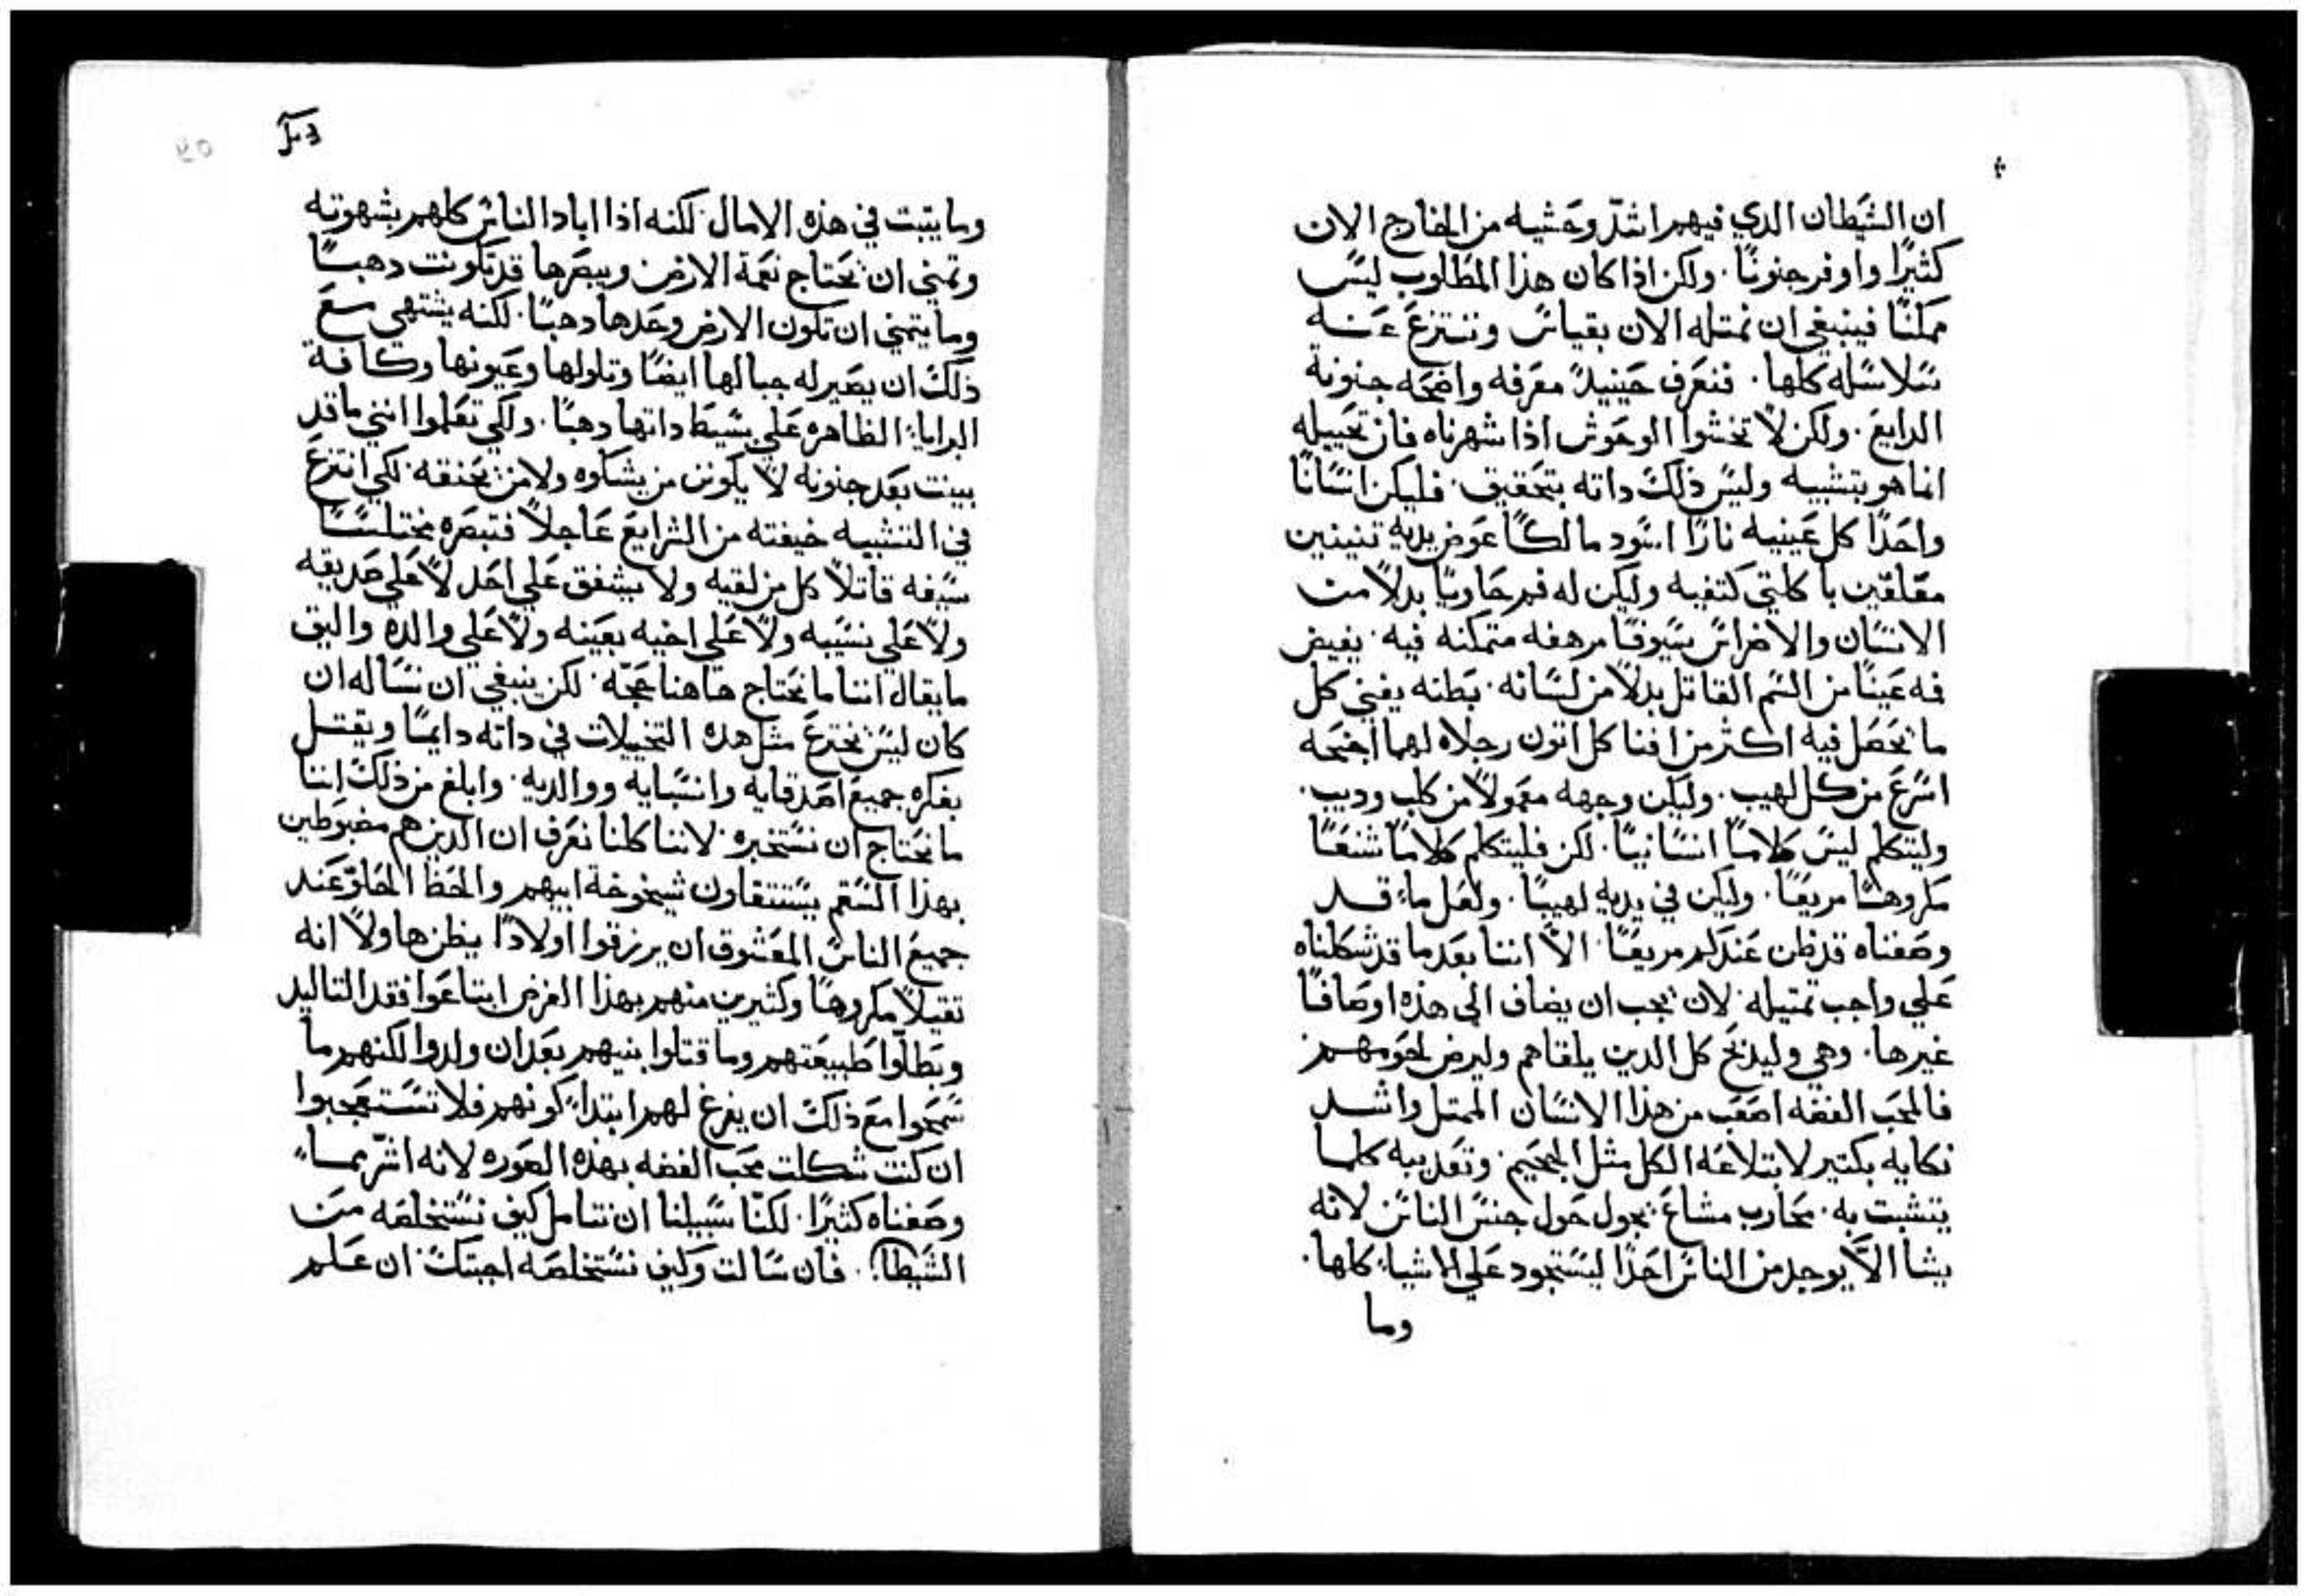 ان الشيطان الدي فيهم اشد وحشيه من الخارج الان
كثيرًا واوفر جنونًا. ولكن اذا كان هذا المطلوب ليس
ممكنًا فينبغي ان نمتله الان بقياس وننتزع عنه
سلاسله كلها. فنعرف حينيدٍ معرفه واضحه جنونه
الدايع. ولكن لا تخشوا الوحوش اذا شهرناه فان تخييله
انما هو بتشبيه وليس ذلك داته بتحقيق. فليكن انسانًا
واحدًا كل عينيه نارًا اسود مالكًا عوض يديه تنينين
معلقين باكلتي كتفيه وليكن له فم حاويًا بدلاً من
الاسنان والاضراس سيوفًا مرهفه متمكنه فيه. يفيض
فه عينًا من السم القاتل بدلاً من لسانه. بطنه يفني كل
ما يحصل فيه اكثر من افنا كل اتون رجلاه لهما اجنحه
اسرع من كل لهيب. وليكن وجهه معمولاً من كلب وديب.
وليتكلم ليس كلامًا انسانيًا. لكن فليتكلم كلامًا شنعًا
مكروهًا مريعًا. وليكن في يديه لهيبًا. ولعل ما قد
وصفناه قد ظن عندكم مريعًا. الاّ اننا بعد ما قد شكلناه
علي واجب تمتيله. لان يجب ان يضاف الي هذه اوصافًا
غيرها. وهي وليدبح كل الدين يلقاهم وليرض لحومهم
فالمحب الفضه اصعب من هذا الانسان الممتل واشد
نكايه بكتير لابتلاعه الكل مثل الجحيم. وتعديبه كلما
يتشبت به. محارب مشاع يجول حول جنس الناس لانه
يشا الاّ يوجد من الناس احدًا ليستحود علي الاشياء كلها.
وما
وما يتبت في هذه الامال. لكنه اذا اباد الناس كلهم بشهوته
وتمني ان تحتاج نعمة الارض ويبصرها قد تكونت دهبًا
وما يتمني ان تكون الارض وحدها دهبًا. لكنه يشتهي مع
ذلك ان يصير له جبالها ايضًا وتلولها وعيونها وكافة
البرايا الظاهره علي بسيط داتها دهبًا. ولكي تعلموا انني ما قد
بينت بعد جنونه لا يكونن من يشكوه ولا من يحنقه. لكي انتزع
في التشبيه خيفته من الشرايع عاجلاً فتبصره مختلسًا
سيفه قاتلاً كل من لقيه ولا يشفق علي احد لا علي صديقه
ولا علي نسيبه ولا علي اخيه بعينه ولا علي والده واليق
ما يقال اننا ما نحتاج هاهنا حجه. لكن ينبغي ان نساله ان
كان ليس يخترع مثل هذه التخيلات في داته دايمًا ويقتل
بفكره جميع اصدقايه وانسبايه ووالديه. وابلغ من ذلك اننا
ما نحتاج ان نستخبره. لاننا كلنا نعرف ان الدين هم مضبوطين
بهذا السقم يستتقلون شيخوخة ابيهم والحظ الحلو عند
جميع الناس المعشوق ان يرزقوا اولادًا يظن هاولاً انه
تقيلاً مكروهًا وكثيرين منهم بهذا الغرض ابتاعوا فقد التاليد
وبطلوا طبيعتهم وما قتلوا بنيهم بعد ان ولدوا لكنهم ما
سمحوا مع ذلك ان يفرغ لهم ابتداء كونهم فلا تستعجبوا
ان كنت شكلت محب الفضه بهذه الصوره لانه اشر مما
وصفناه كثيرًا. لكنا سبيلنا ان نتامل كيف نستخلصه من
الشيطان. فان سالت وكيف نستخلصه اجبتك ان علم